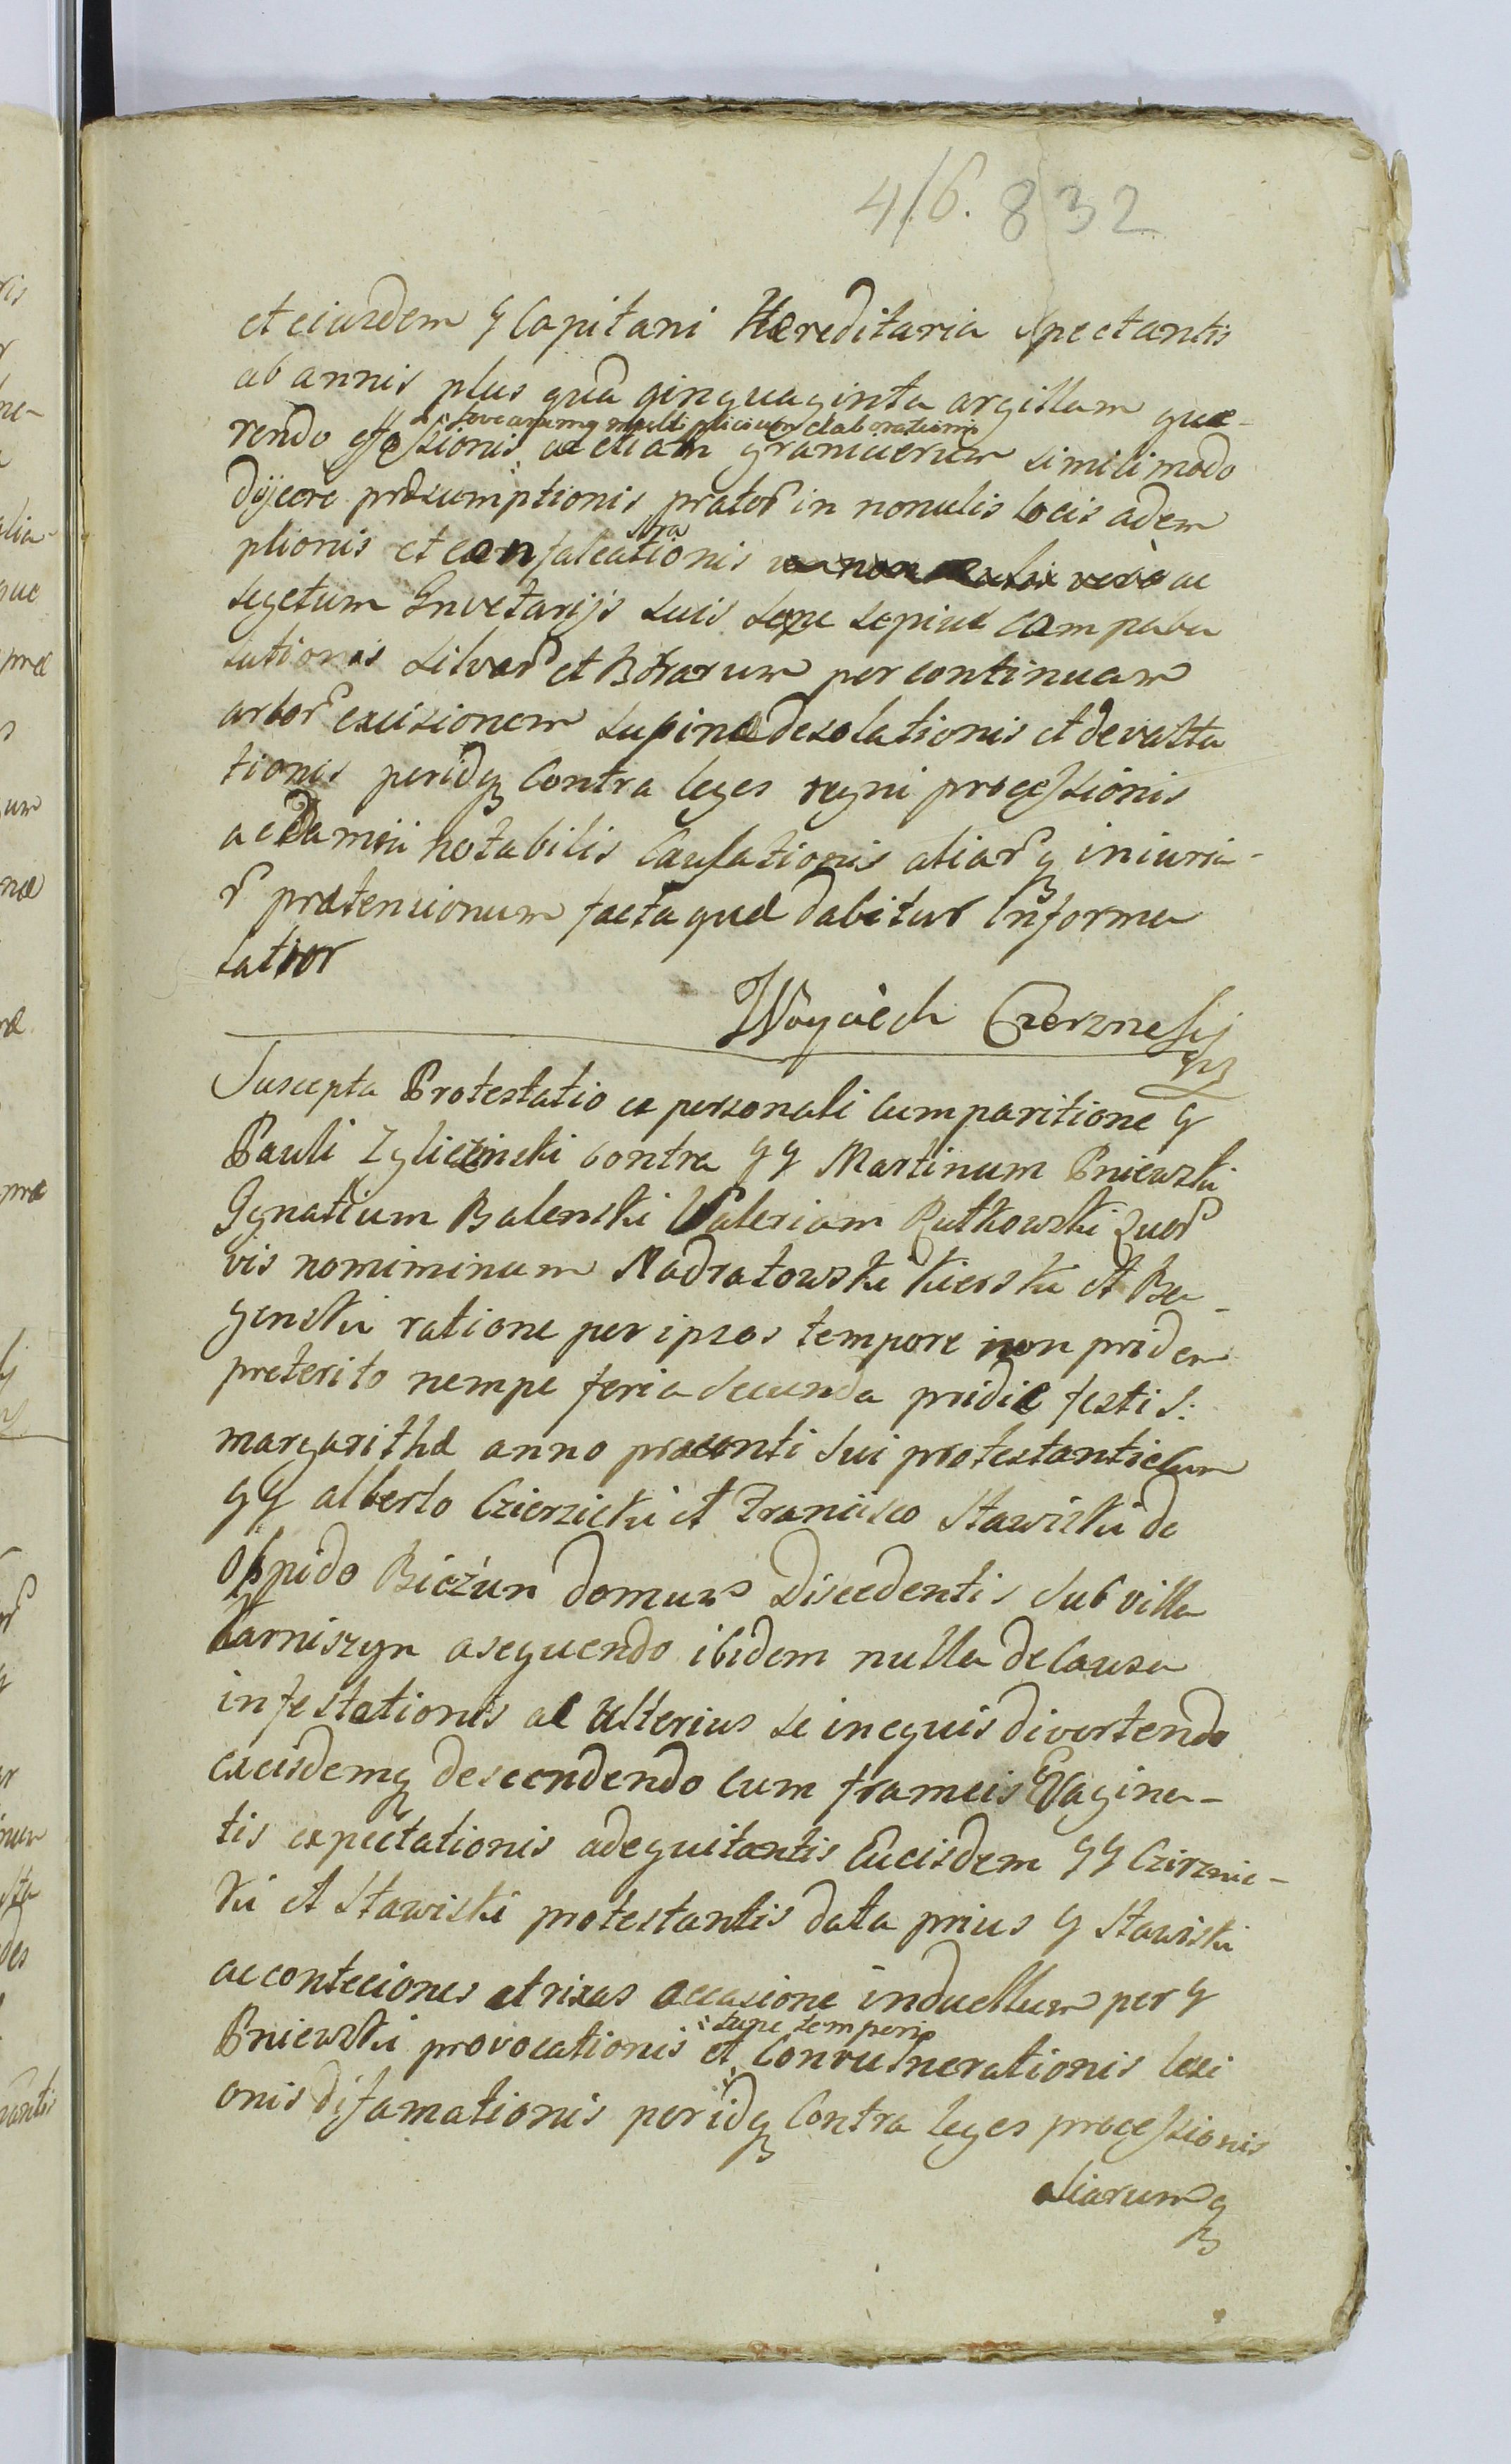 416. 832
et eiusdem G Capitani Hæreditaria Spectantis
ab annis plus quã qinquaginta argillam quæ-
fovearumq multiplicium elaborationis
rendo effossionis ac etiam granicierum simili modo
dijicere præsumptionis prator in nonulis locis adem
ptionis et confalcationis ac
segetum Invetarijs suis sepe sepius compabu
lationis silvar et Borrarum per continuam
arbor excisionem supinæ desolationis et devasta
tionis peridq Contra leges regni processionis
ac damni notabilis Causationis aliarq iniuria-
r prætensionum facta quæ dabitur Informa
latior
Woyciech Czerznicki
Suscepta Protestatio ex personali cumparitione G
Pauli Zgliczinski contra GG Martinum Pniewski
Ignatium Balenski Valeriam Rutkowski quor
vis nomiminum Nadratowski Kierski et Be-
genski ratione per ipsos tempore non pridem
preterito nempe feria secunda pridie festi S:
margarithæ anno præsenti sui protestantis cum
GG alberto Czierzicki et Francisco Stawiski de
Oppido Biezun domum Discedentis sub villa
Karniszyn asequendo ibidem nulla de Causa
infestationis ac Ulterius se in equis divertendo
ex eisdemq descendendo cum frameis Evagina-
tis expectationis adequitantis Cu eisdem GG Czirznic-
ki et Stawiski protestantis data prius G Stawiski
ac conteciones et rixas occasione induellum per G
tunc temporis
Pniewski provocationis et Convulnerationis lesi
onis difamationis peridq Contra leges processionis
aliarumq